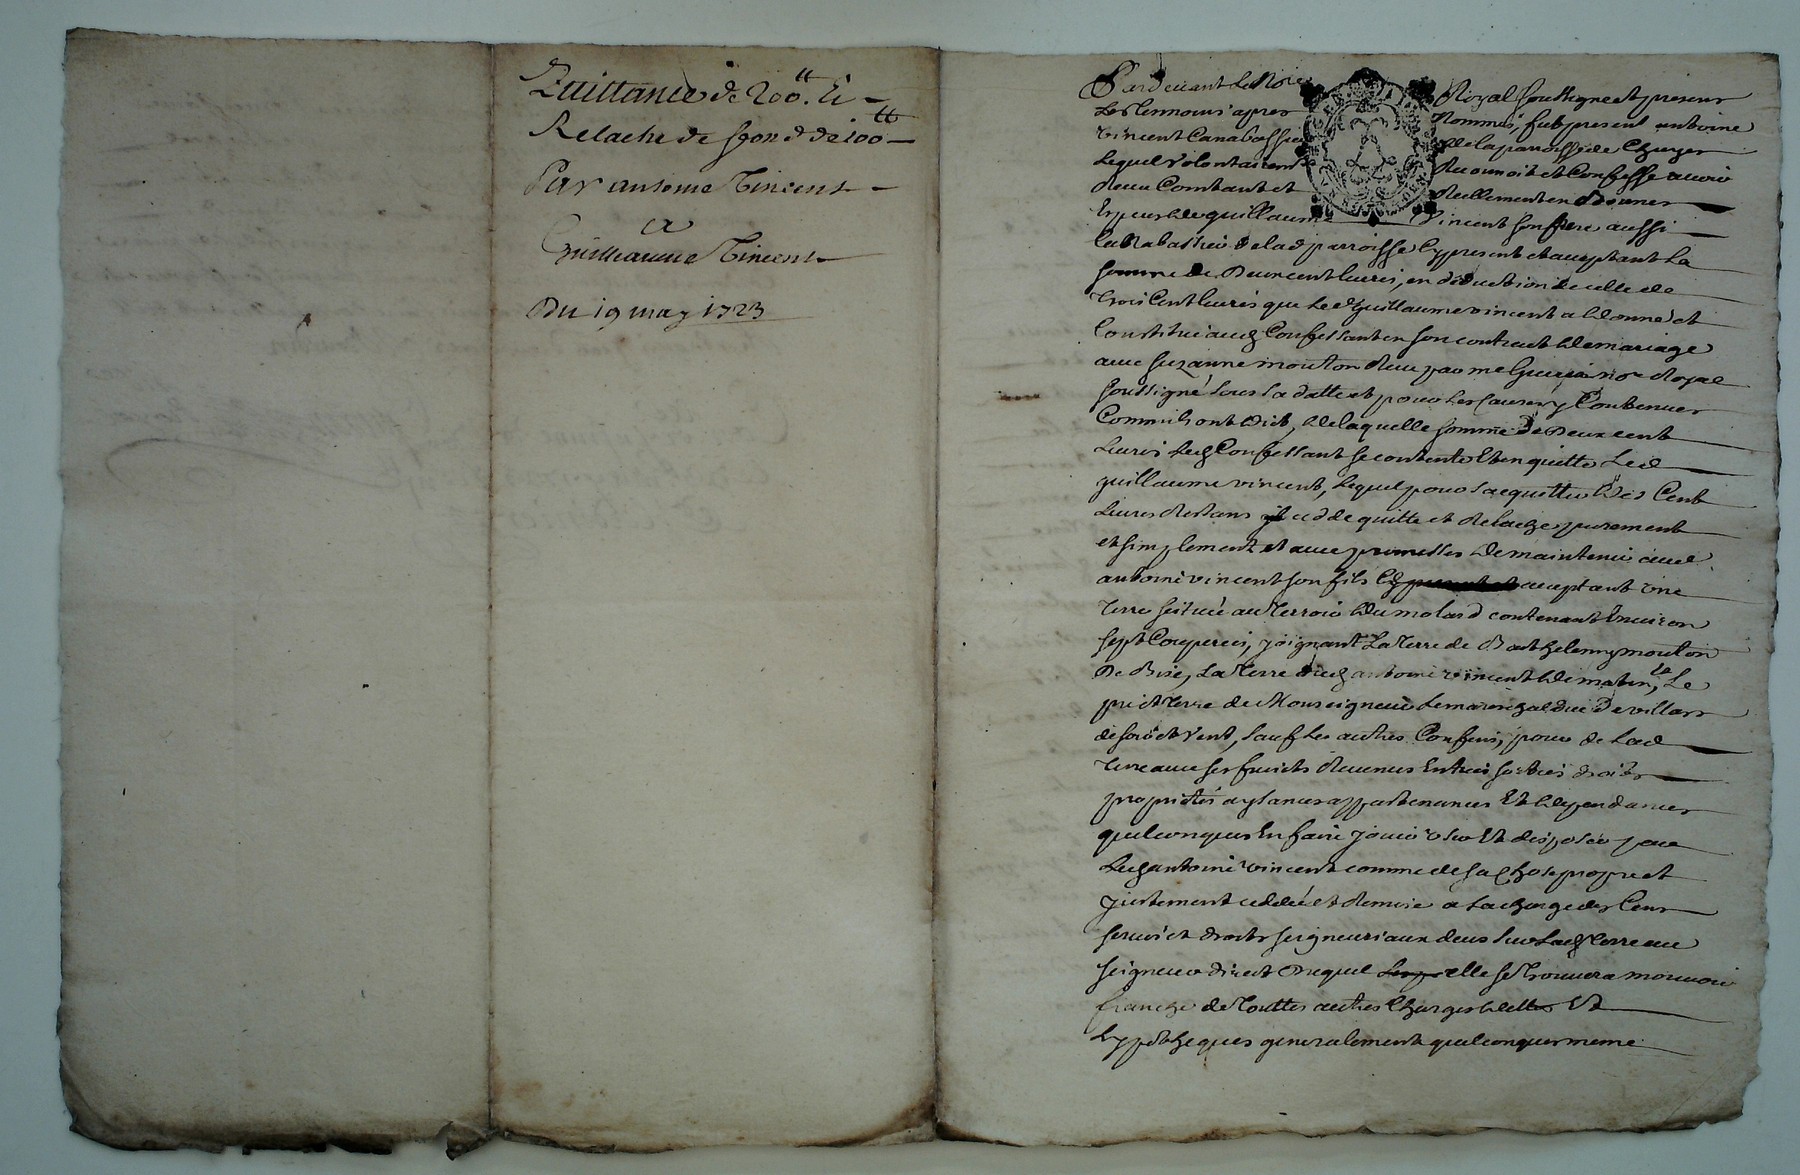 Quittance de 200ᵗᵗ. Et
Relache de fond de 100ᵗᵗ
Par antoine Vincent
a
Guilleaume Vincent
Du 19 may 1723
Pardevant le No.re Royal soussigne et presens
Les temoins apres Nommés, fut present antoine
vincent de la parroisse de
Lequel volontairemt Reconnoit et Confesse avoir
Receu Comtant et Reellement en deniers
Especes de guillaume Vincent son frere aussi
de lad parroisse Cy present et acceptant La
somme de Deux cent livres, en déduction de celle de
Trois Cent livres que led guillaume vincent a donné et
Constitué aud Confessant en son contract de mariage
avec suzanne mouton Receu par me no.re Royal
soussigné sous sa datte et pour les causes y Contenues
Comm'ils ont dict, de laquelle somme de Deux cent
Livres led Confessant se contente Et en quitte Led
guillaume vincent, Lequel pour s'acquitter des Cent
Livres Restans cedde quitte et Relache purement
et simplement et avec promesses de maintenir aud
antoine vincent son fils Cy acceptant Une
Terre scituée au Terroir du molard contenant Environ
sept Couperées, joignant La Terre de Barthelemy mouton
De Bize, La Terre dud antoine vincent de matin, la Le
pré et Terre de Monseigneur Le marechal Duc De villars
de soir et vent, sauf Les autres Confins, pour de Lad
Terre avec ses fruits Revenus Entrées sorties droits
proprietés aysances appartenances Et dependances
quelconques En faire jouir user Et disposer par
Led antoine vincent comme de sa Chose propre et
justement ceddée et Remise a La charge des Cens
servis et droits seigneuriaux deus sur Lad Terre au
seigneur direct Duquel elle se Trouvera mouvoir
franche de Touttes autres Charges debtes Et
hypotheques generalement quelconques meme